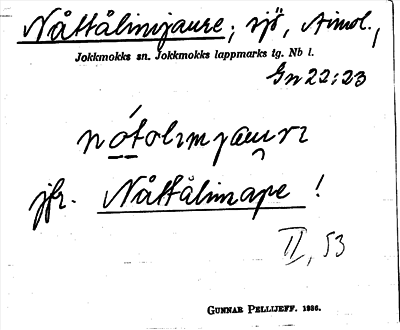 Nåttålimjaure; sjö, Aimol.,
Jokkmokks sn. Jokkmokks lappmarks tg. Nb l.
Gn 22:23
nótolımjaurɩ
jfr. Nåttålimape !
II, 53
GUNNAR PELLIJEFF. 1936.